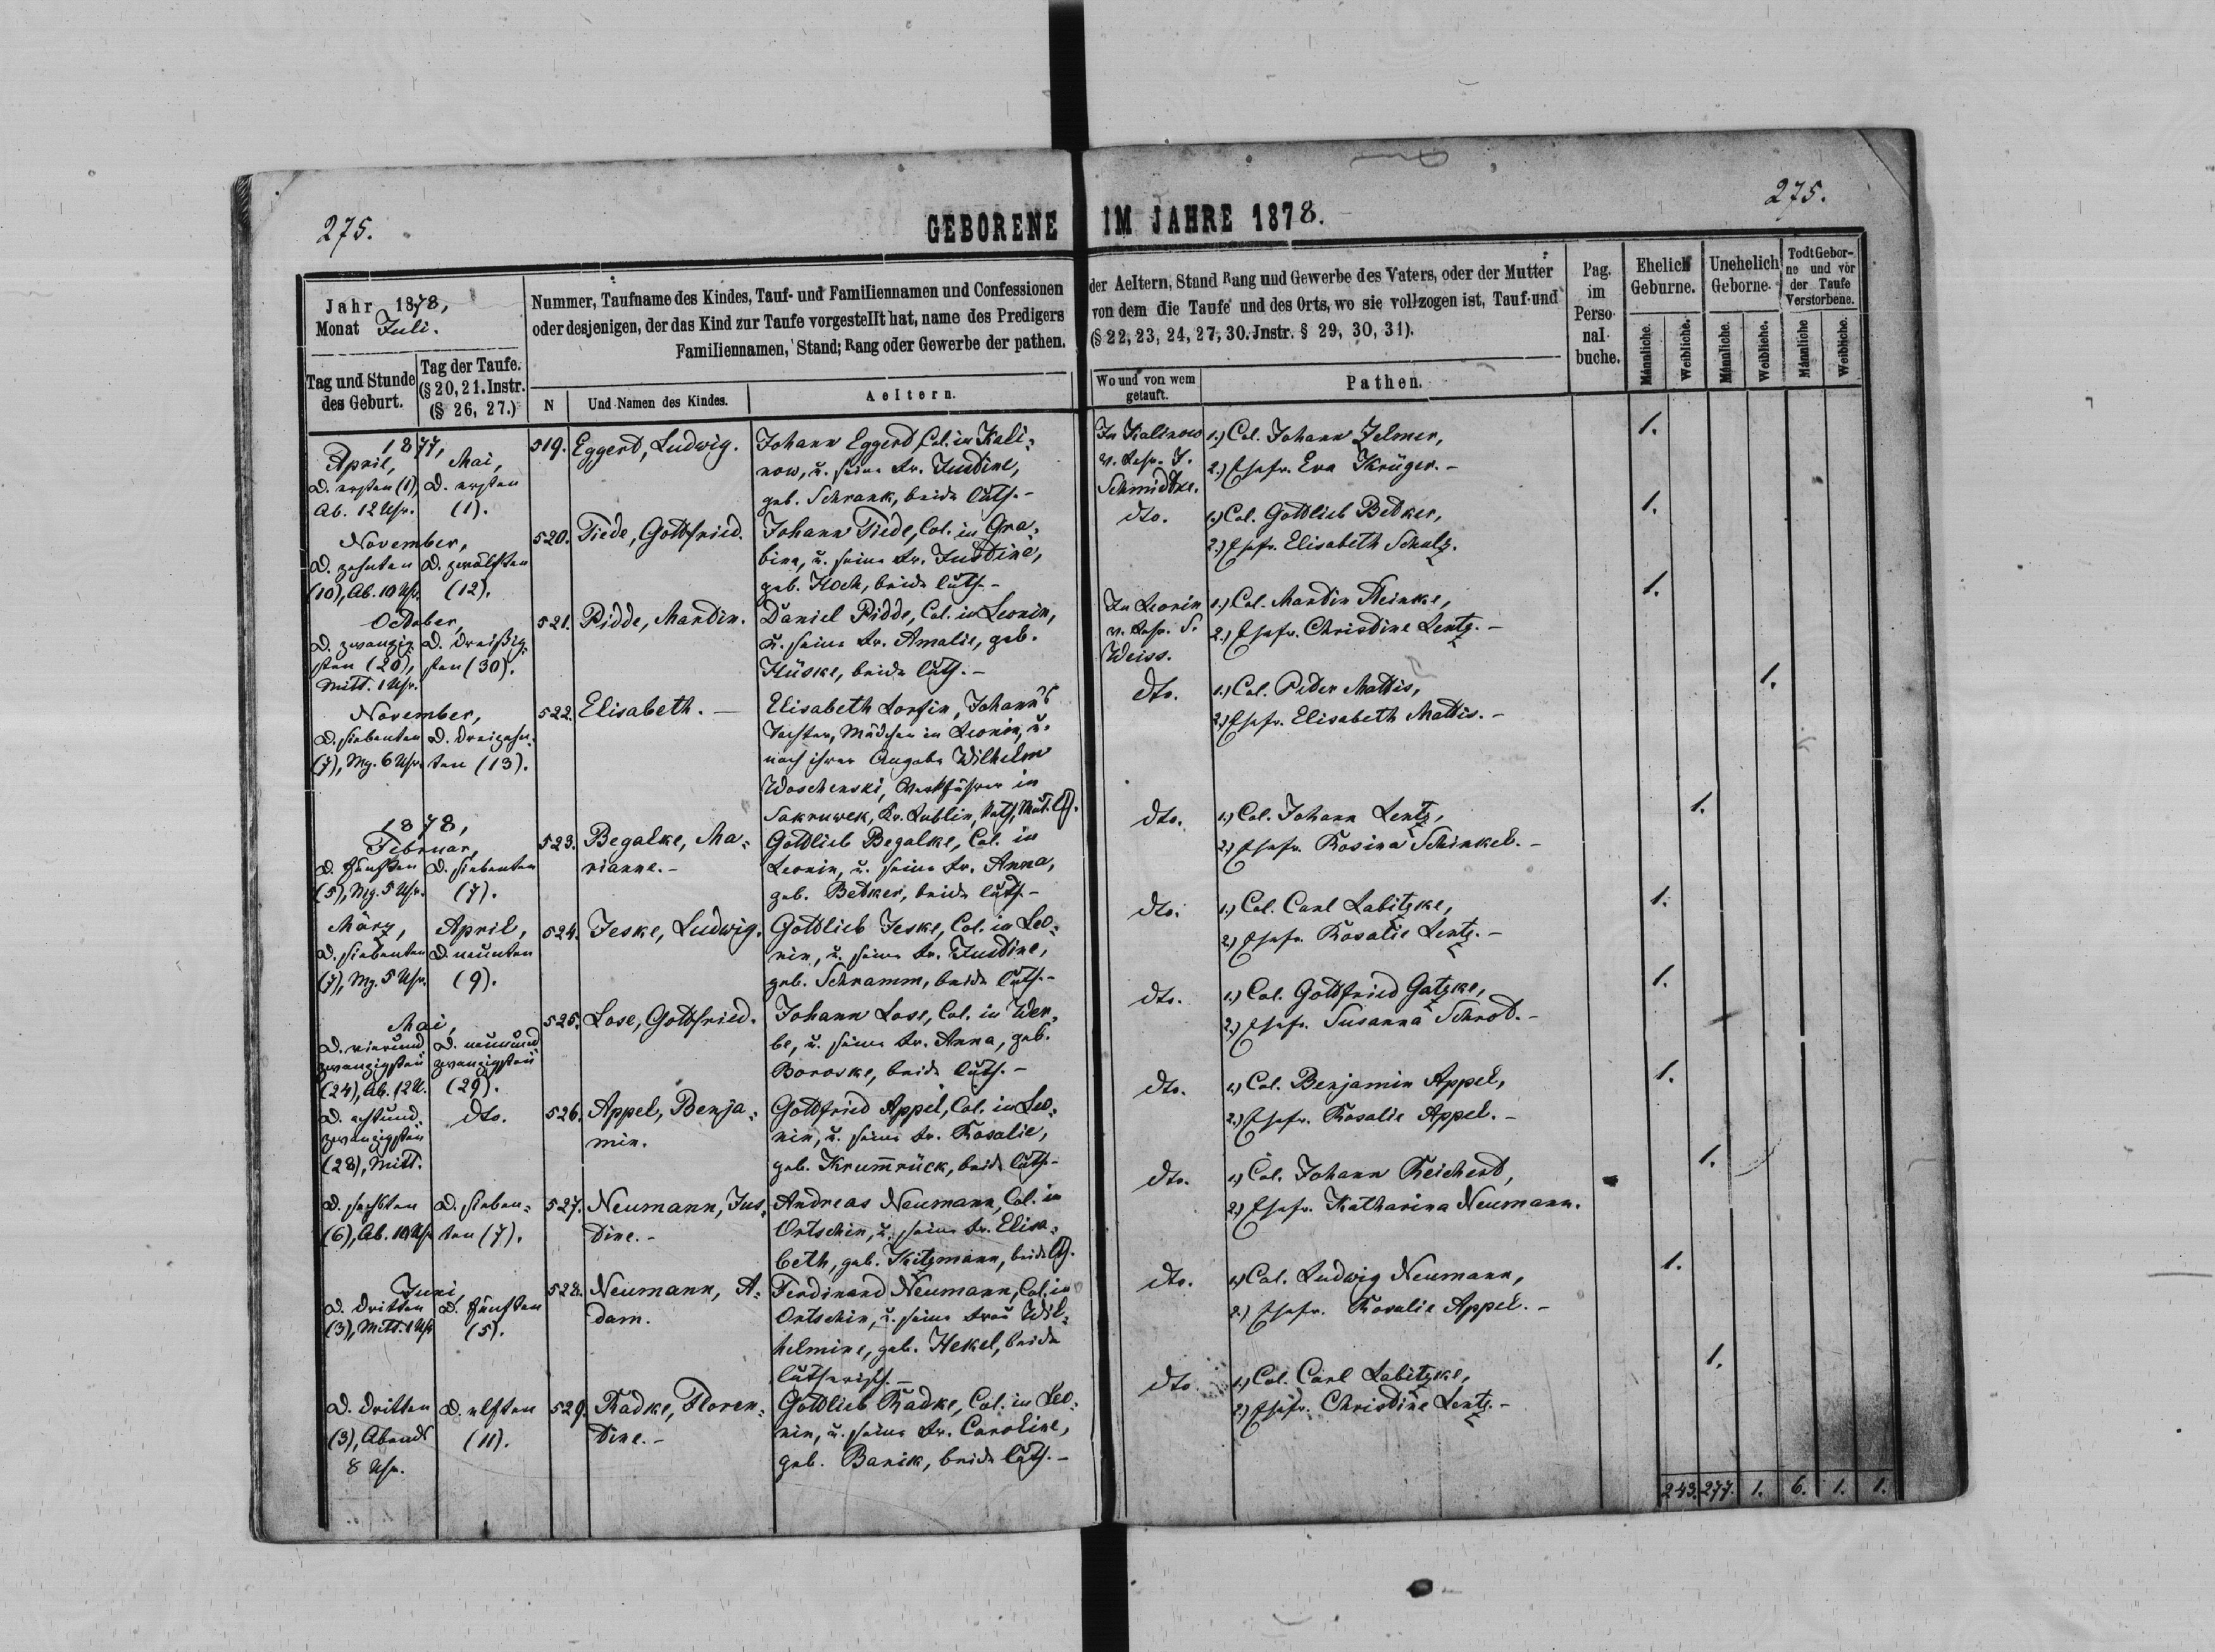 275.
GEBORENE IM JAHRE 1878.
275.
Jahr 1878,
Monat Juli.
Tag und Stunde des Geburt.
Tag der Taufe. (§ 20, 21. Instr. (§ 26, 27.)
Nummer, Taufname des Kindes, Tauf- und Familiennamen und Confessionen
oder desjenigen, der das Kind zur Taufe vorgestellt hat, name des Predigers
Familiennamen, Stand; Rang oder Gewerbe der pathen.
N
Und Namen des Kindes.
Aeltern.
der Aeltern, Stand Rang und Gewerbe des Vaters, oder der Mutter
von dem die Taufe und des Orts, wo sie vollzogen ist, Tauf-und
(§ 22, 23, 24, 27, 30. Jnstr. § 29, 30, 31).
Wo und von wem getauft.
Pathen.
Pag. im Perso- nal- buche.
Ehelich Geburne.
Unehelich Geborne.
Todt Gebor- ne und vor der Taufe Verstorbene.
Männliche.
Weibliche.
Männliche.
Weibliche.
Männliche
Weibliche.
1877,
April, Mai,
D. ersten (1), D. ersten
Ab. 12 Uhr. (1).
519. Eggerd, Ludwig.
Johann Eggerd, Col. in Kali-
now, u. seine Fr. Justine,
geb. Schrank, beide luth.-
In Kalinow
v. Lehr. J.
Schmidtke.
1.) Col. Johann Zelmer,
2.) Ehefr. Eva Krüger.-
1.
November,
D. zehnten D. zwölften
(10), Ab. 10 Uhr. (12).
520. Tiede, Gottfried.
Johann Tiede, Col. in Gra-
bina, u. seine Fr. Justine,
geb. Koch, beide luth.-
dto.
1.) Col. Gottlieb Betker,
2.) Ehefr. Elisabeth Schulz.
1.
October,
D. zwanzig- D. dreißig-
sten (20), sten (30).
Mitt. 1 Uhr.
521. Pidde, Martin.
Daniel Pidde, Col. in Leonin,
u. seine Fr. Amalie, geb.
Hüske, beide luth.-
In Leonin
v. Lehr. S.
Weiss.
1.) Col. Martin Steinke,
2.) Ehefr. Christine Lentz.-
1.
November,
D. siebenten D. dreizehn-
(7), Mg. 6 Uhr. ten (13).
522. Elisabeth.-
Elisabeth Johann's
Tochter, Mädchen in Leonin, u.
nach ihrer Angabe Wilhelm
Woschenski, Werkführer in
Sakruwek, Kr. Lublin,
dto.
1.) Col. Peter Mattis,
2.) Ehefr. Elisabeth Mattis.-
1.
1878,
Februar,
D. fünften D. siebenten
(5), Mg. 5 Uhr. (7).
523. Begalke, Ma-
rianne.-
Gottlieb Begalke, Col. in
Leonin, u. seine Fr. Anna,
geb. Betker, beide luth.-
dto.
1.) Col. Johann Lentz,
2.) Ehefr. Rosina Schinkel.-
1.
März, April,
D. siebenten D. neunten
(7), Mg. 5 Uhr. (9).
524. Jeske, Ludwig.
Gottlieb Jeske, Col. in Leo-
nin, u. seine Fr. Justine,
geb. Schramm, beide luth.-
dto.
1.) Col. Carl Labitzke,
2.) Ehefr. Rosalie Lentz.-
1.
Mai,
D. vierund D. neunund
zwanzigsten zwanzigsten
(24), Ab. 12 U. (29).
525. Lose, Gottfried.
Johann Lose, Col. in Wer-
be, u. seine Fr. Anna, geb.
Boroske, beide luth.-
dto.
1.) Col. Gottfried Gatzke,
2.) Ehefr. Susanna Schrot.-
1.
D. achtund dto.
zwanzigsten
(28), Mitt.
526. Appel, Benja-
min.
Gottfried Appel, Col. in Leo-
nin, u. seine Fr. Rosalie,
geb. Krumrück, beide luth.-
dto.
1.) Col. Benjamin Appel,
2.) Ehefr. Rosalie Appel.-
1.
D. sechsten D. sieben-
(6), Ab. 10 Uhr ten (7).
527. Neumann, Jus-
tine.-
Andreas Neumann, Col. in
Ortschin, u. seine Fr. Elisa-
beth, geb. Kitzmann, beide lth.
dto.
1.) Col. Johann Reichert,
2.) Ehefr. Katharina Neumann.
1.
Juni,
D. dritten D. fünften
(3), Mitt. 1 Uhr (5).
528. Neumann, A-
dam.
Ferdinand Neumann, Col. in
Ortschin, u. seine Frau Wil-
helmine, geb. Hekel, beide
lutherisch.-
dto.
1.) Col. Ludwig Neumann,
2.) Ehefr. Rosalie Appel.-
1.
D. dritten D. elften
(3), Abends (11).
8 Uhr.
529. Radke, Floren-
tine.-
Gottlieb Radke, Col. in Leo-
nin, u. seine Fr. Caroline,
geb. Banik, beide luth.-
dto.
1.) Col. Carl Labitzke,
2.) Ehefr. Christine Lentz.-
1.
243. 277. 1. 6. 1. 1.